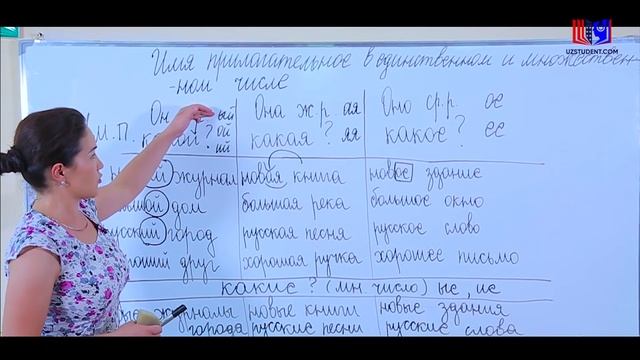 UZSTUDENT.COM
Имя прилагательное в единственном и множествен-
-ном числе
Он ый Она ж.р ая Оно ср.р. ое
М.П. ? ой какая? яя какое? ее
ий
журнал новая книга новое здание
дом большая река большое окно
русский город русская песня русское слово
друг хорошая ручка хорошее письмо
какие? (мн. число) ые, ие
журналы новые книги новые здания
города русские песни русские слова